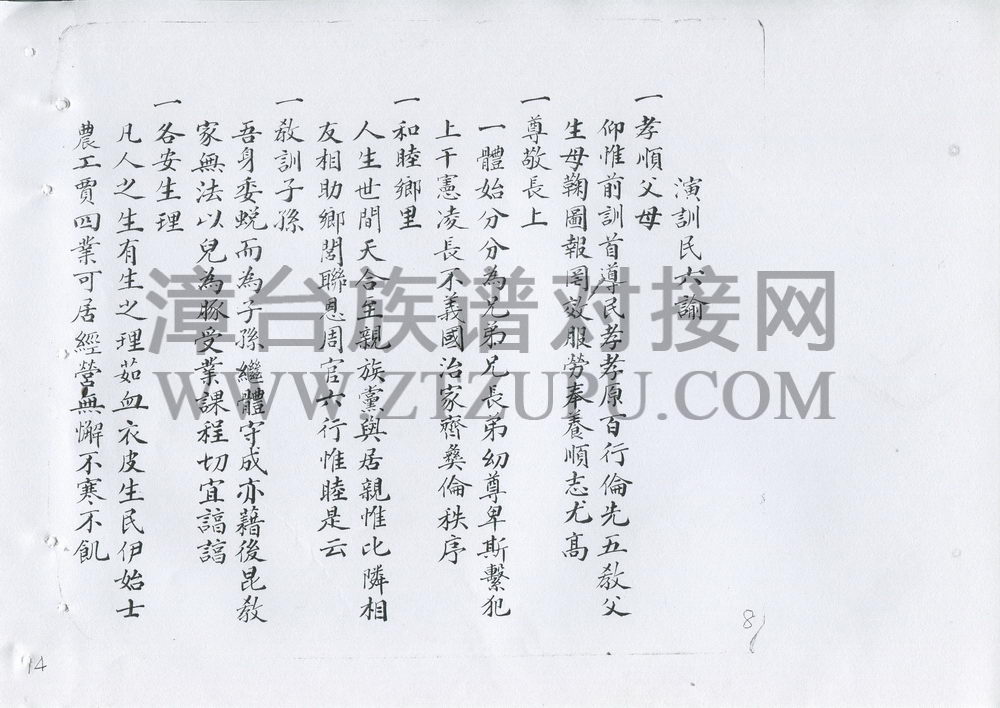 演訓民六諭
一孝順父母
仰惟前訓首尊民孝孝原百行倫先五教父
生母鞠圖報罔效服勞奉養順志尤高
一尊敬長上
一體始分分為兄弟兄長弟幼尊卑斯繫犯
上干憲凌長不義國治家齊彝倫秩序
一和睦鄉里
人生世間天合至親族黨與居親惟比隣相
友相助鄉閭聯恩周官六行惟睦是云
一教訓子孫
吾身委蛻而為子孫繼體守成亦藉後昆教
家無法以兒為豚受業課程切宜諄諄
一各安生理
凡人之生有生之理茹血衣皮生民伊始士
農工賈四業可居經營無懈不寒不飢
漳台族谱对接网
WWW.ZTZUPU.COM
8
14